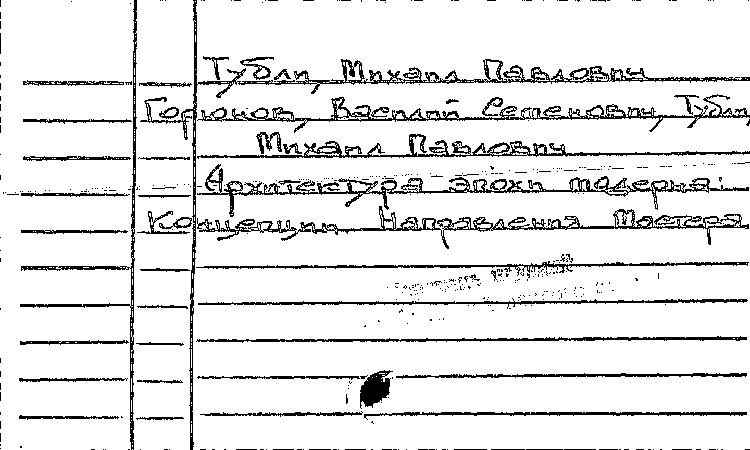 Тубли, Михаил Павлович
Горюнов, Василий Семенович, Тубли,
Михаил Павлович
Архитектура эпохи модерна:
Концепции. Направления. Мастера